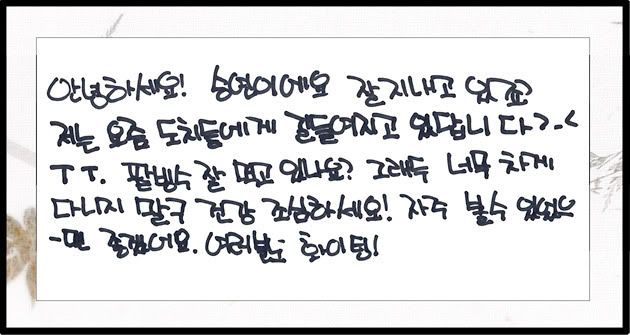 안녕하세요! 승연이에요 잘지내고 있죠?
저는 요즘 도치들에게 길들여지고 있답니다 >-<
ㅜㅜ. 팥빙수 잘 먹고 있나요? 그래두 너무 차게
다니지 말구 건강 조심하세요! 자주 볼수 있었으
-면 좋겠어요. 여러분 화이팅!